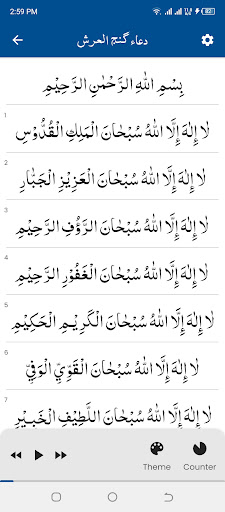 2:59 PM
82
دعاء گنج العرش
بِسْمِ اللهِ الرَّحْمٰنِ الرَّحِيْمِ
لَا إِلٰهَ إِلَّا اللهُ سُبْحَانَ الْمَلِكِ الْقُدُّوْسِ
1
لَا إِلٰهَ إِلَّا اللهُ سُبْحَانَ الْعَزِيْزِ الْجَبَّارِ
2
لَا إِلٰهَ إِلَّا اللهُ سُبْحَانَ الرَّؤُفِ الرَّحِيْمِ
3
لَا إِلٰهَ إِلَّا اللهُ سُبْحَانَ الْغَفُوْرِ الرَّحِيْمِ
4
لَا إِلٰهَ إِلَّا اللهُ سُبْحَانَ الْكَرِيْمِ الْحَكِيْمِ
5
لَا إِلٰهَ إِلَّا اللهُ سُبْحَانَ الْقَوِيِّ الْوَفِيِّ
6
لَا إِلٰهَ إِلَّا اللهُ سُبْحَانَ اللَّطِيْفِ الْخَبِيْرِ
7
Theme Counter